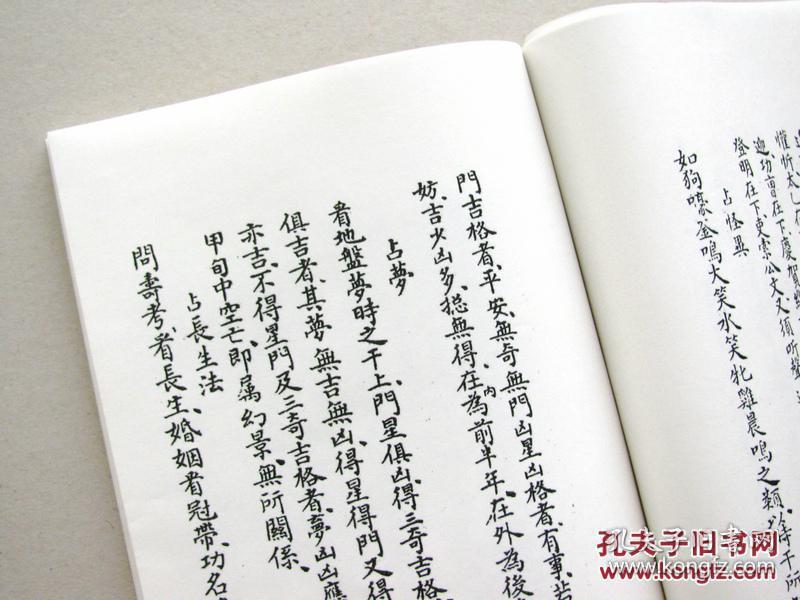 惟忻太乙在
迎功曹在下慶賀
登明在下吏索公文又須所
占怪異
如狗嚎釜鳴犬笑水笑牝雞晨鳴之類
門吉格者、平安、無奇無門凶星凶格者、有事、若
妨、吉少凶多、揔無得、在内為前半年、在外為後
占夢
看地盤夢時之干上、門星俱凶、得三奇吉格
俱吉者、其夢無吉無凶、得星得門又得
亦吉、不得星門及三奇吉格者、夢凶凶應
甲旬中空亡、即属幻景、無所關係、
占長生法
問壽考、看長生、婚姻看冠帶、功名
孔夫子旧书网
www.kongfz.com